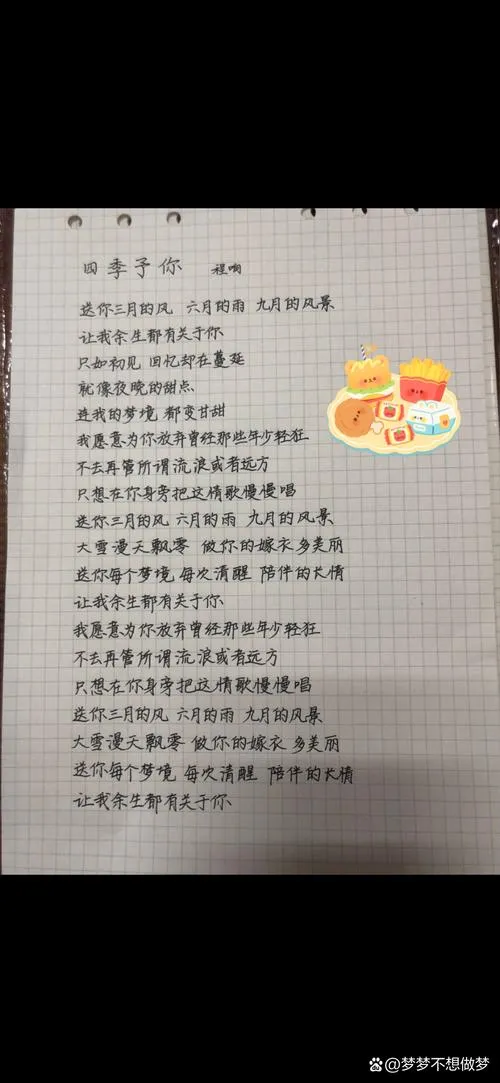 四季予你 程响
送你三月的风 六月的雨 九月的风景
让我余生都有关于你
只如初见 回忆却在蔓延
就像夜晚的甜点
连我的梦境 都变甘甜
我愿意为你放弃曾经那些年少轻狂
不去再管所谓流浪或者远方
只想在你身旁把这情歌慢慢唱
送你三月的风 六月的雨 九月的风景
大雪漫天飘零 做你的嫁衣 多美丽
送你每个梦境 每次清醒 陪伴的长情
让我余生都有关于你
我愿意为你放弃曾经那些年少轻狂
不去再管所谓流浪或者远方
只想在你身旁把这情歌慢慢唱
送你三月的风 六月的雨 九月的风景
大雪漫天飘零 做你的嫁衣 多美丽
送你每个梦境 每次清醒 陪伴的长情
让我余生都有关于你
@梦梦不想做梦